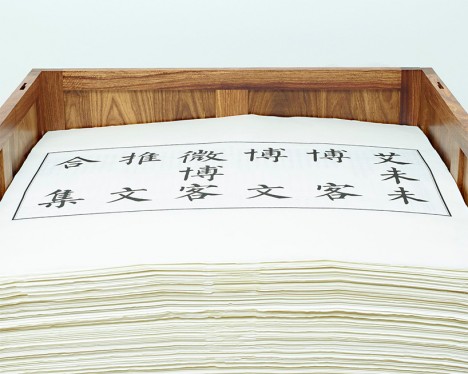 艾未未
博客
博文
微博客
推文
合集